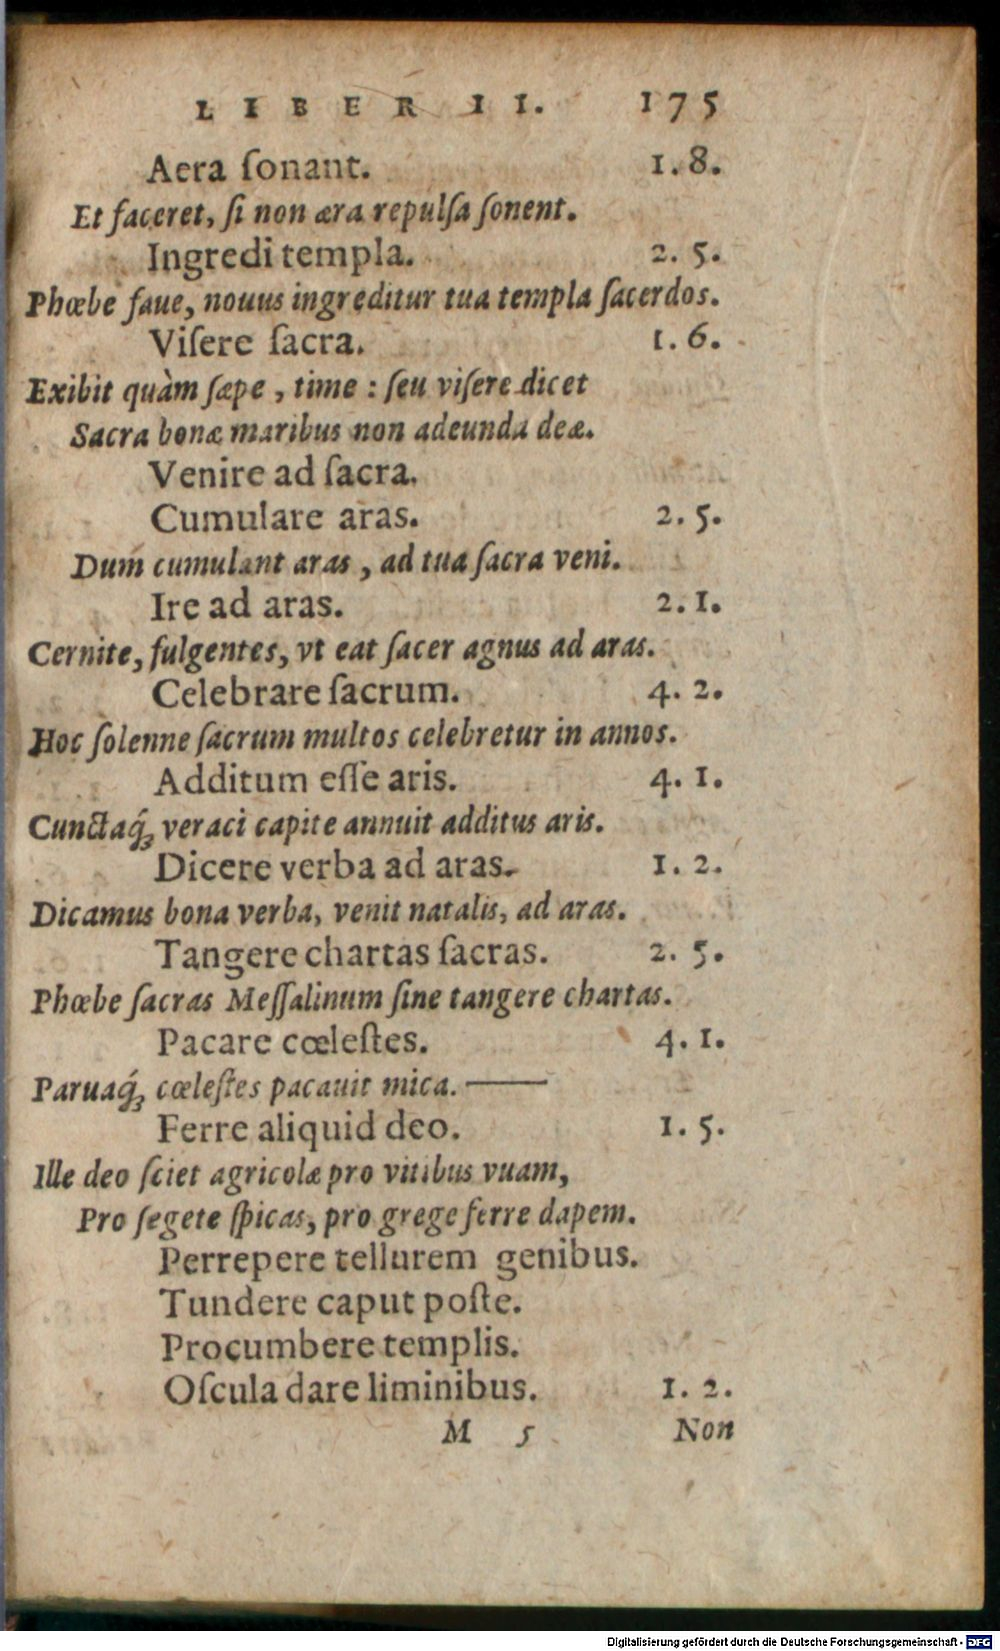 LIBER II. 175
Aera ſonant. 1. 8.
Et faceret, ſi non æra repulſa ſonent.
Ingredi templa. 2. 5.
Phœbe faue, nouus ingreditur tua templa ſacerdos.
Viſere ſacra. 1. 6.
Exibit quàm ſæpe, time: ſeu viſere dicet
Sacra bonæ maribus non adeunda deæ.
Venire ad ſacra.
Cumulare aras. 2. 5.
Dum cumulant aras, ad tua ſacra veni.
Ire ad aras. 2. 1.
Cernite, fulgentes, vt eat ſacer agnus ad aras.
Celebrare ſacrum. 4. 2.
Hoc ſolenne ſacrum multos celebretur in annos.
Additum eſſe aris. 4. 1.
Cunctaq́ꝫ veraci capite annuit additus aris.
Dicere verba ad aras. 1. 2.
Dicamus bona verba, venit natalis, ad aras.
Tangere chartas ſacras. 2. 5.
Phœbe ſacras Meſſalinum ſine tangere chartas.
Pacare cœleſtes. 4. 1.
Paruaq́ꝫ cœleſtes pacauit mica. ——
Ferre aliquid deo. 1. 5.
Ille deo ſciet agricolæ pro vitibus vuam,
Pro ſegete ſpicas, pro grege ferre dapem.
Perrepere tellurem genibus.
Tundere caput poſte.
Procumbere templis.
Oſcula dare liminibus. 1. 2.
M 5 Non
Digitalisierung gefördert durch die Deutsche Forschungsgemeinschaft - DFG